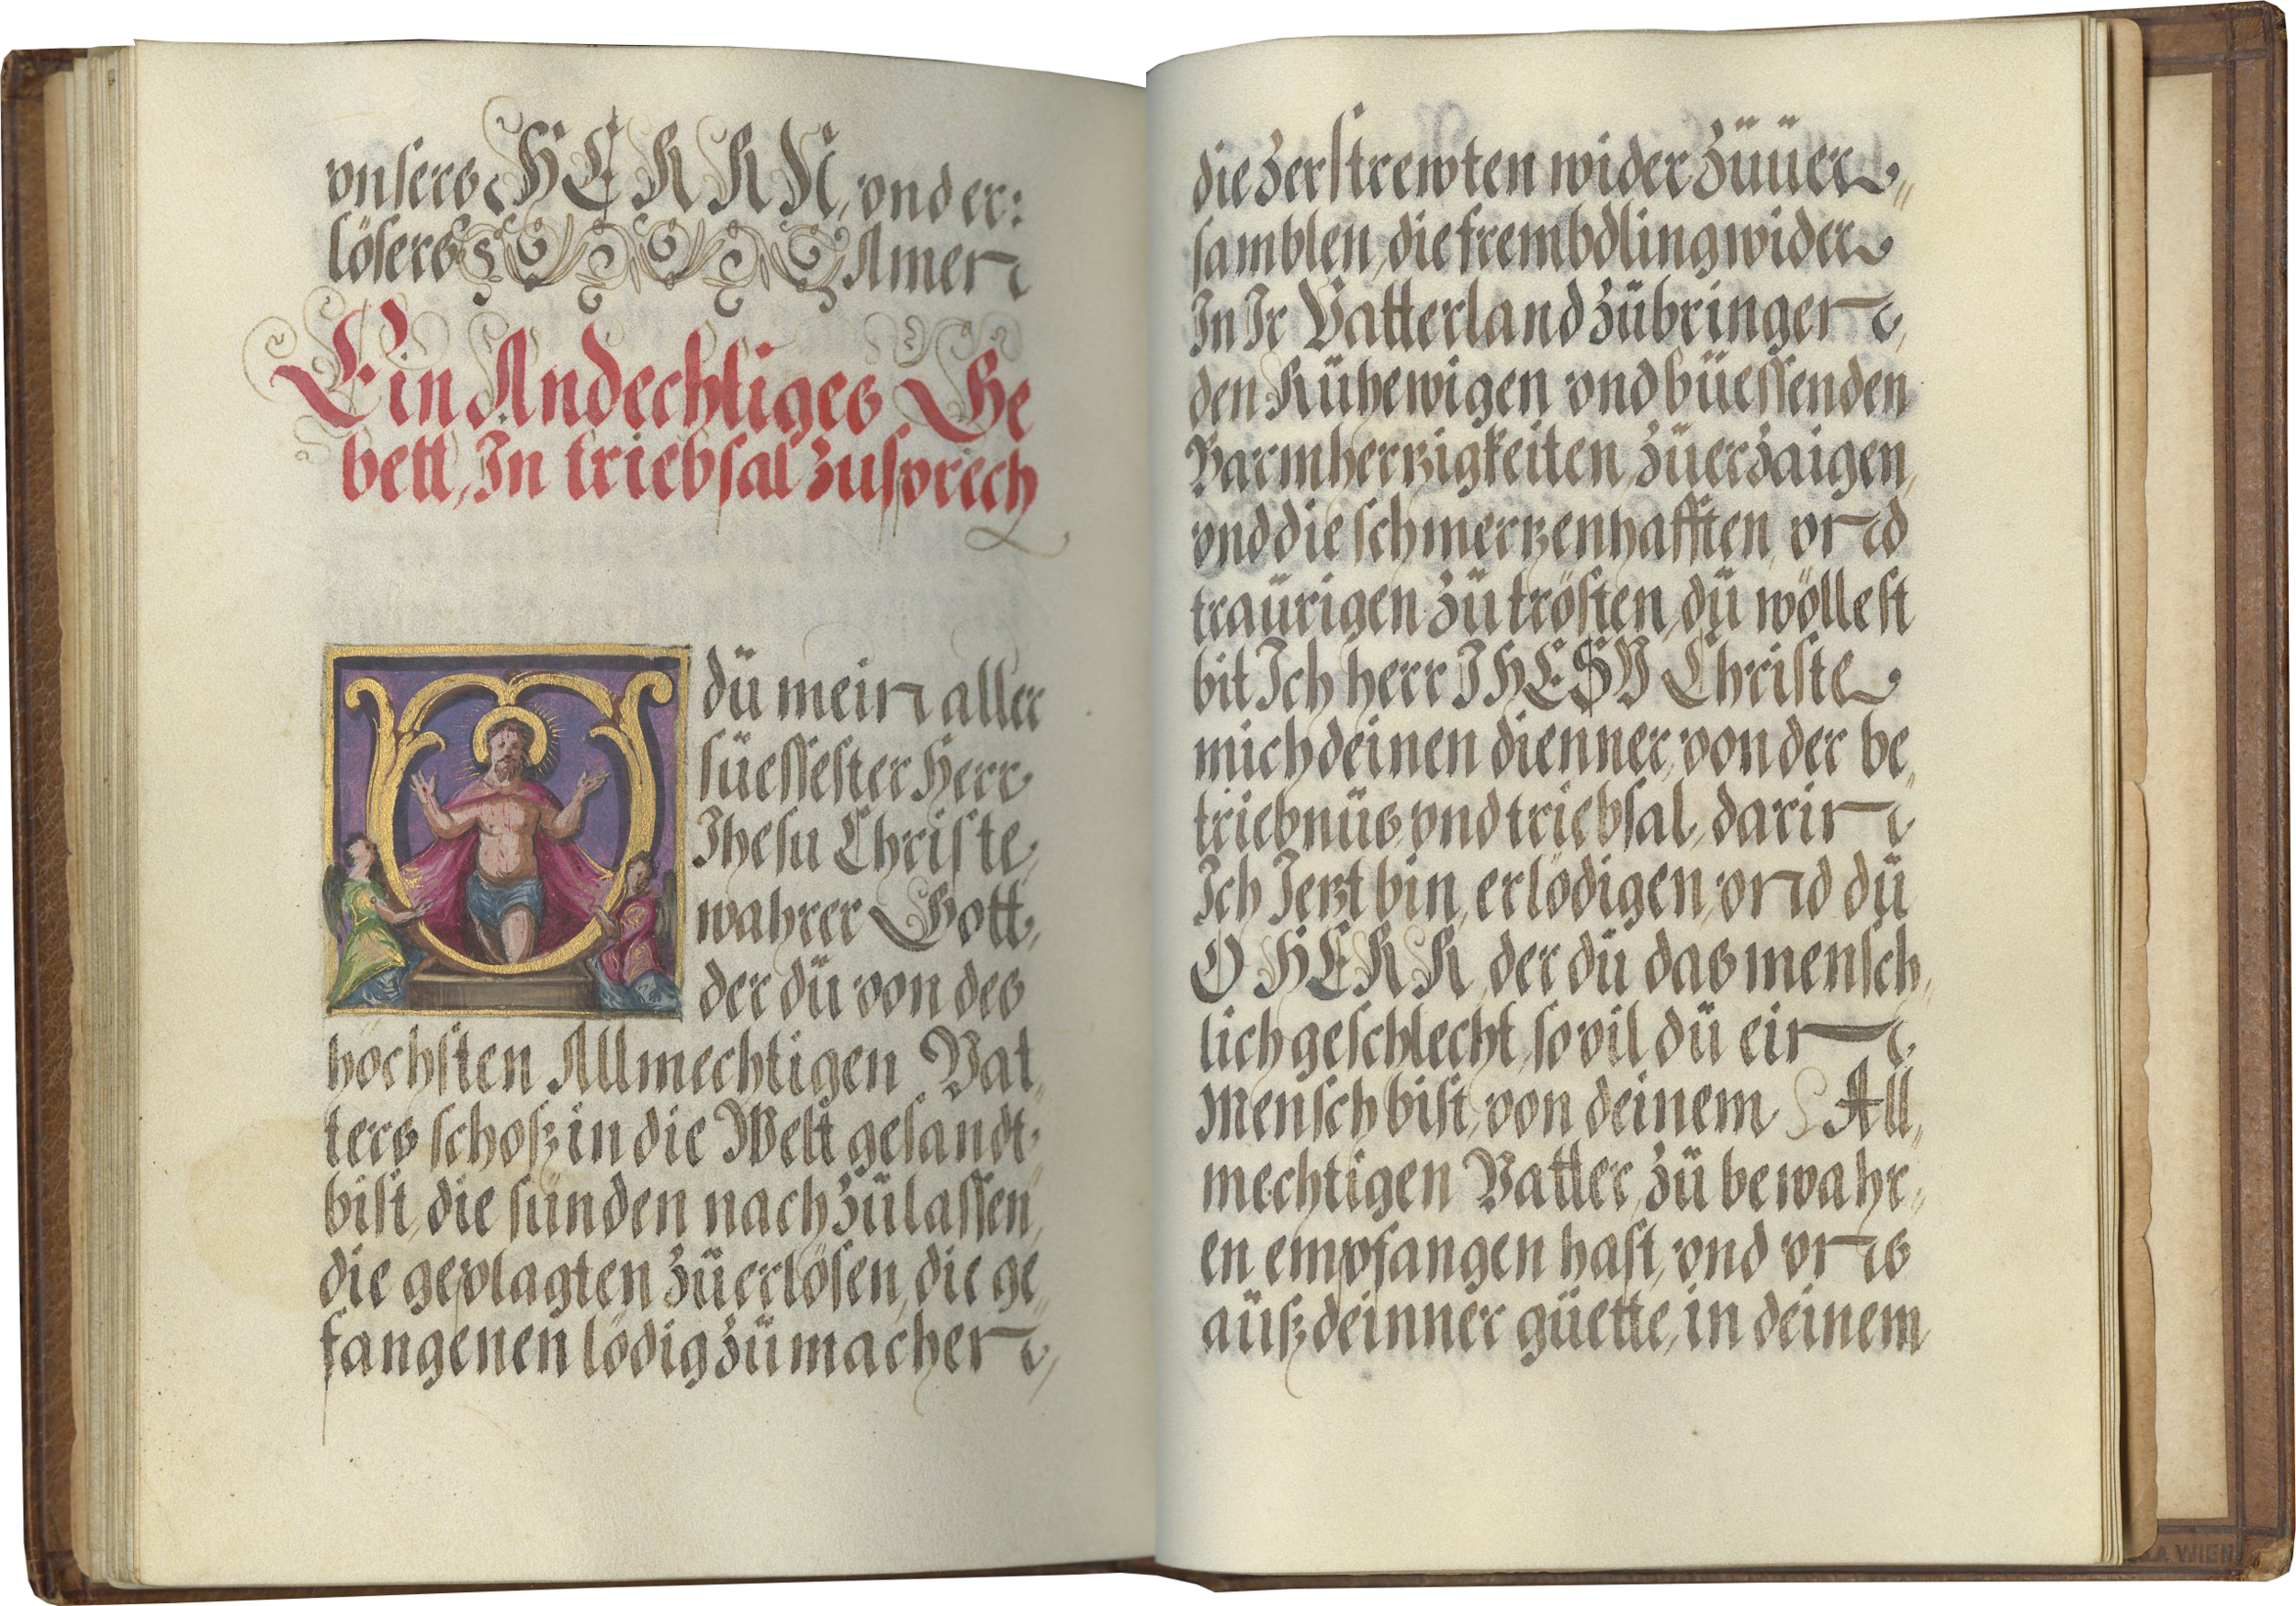 vnsers HERRN, vnd er:
lösers Amen
Ein Andechtiges Ge
bett, In triebsal zusprech
O dü mein aller
süessester Herr
Ihesu Christe,
wahrer Gott,
der dü von des
höchsten Allmechtigen Vat„
ters schoß in die Welt gesandt
bist, die sünden nach zülassen,
die geplagten züerlösen, die ge„
fangenen lödig zümachen,
die zerstrewten wider züüer„
samblen, die frembdling wider
In Ir Vatterland zübringen,
den Rühewigen vnd büessenden
Barmhertzigkeiten züerzaigen,
vnd die schmertzenhafften, vnd
traürigen zü trösten, dü wöllest
bit Ich herr IHESV Christe
mich deinen dienner, von der be„
triebnüs vnd triebsal, darin
Ich Ietzt bin, erlödigen, vnd dü
O HERR, der dü das mensch„
lich geschlecht, so vil dü ein
Mensch bist, von deinem All„
mechtigen Vatter, zü bewahr„
en empfangen hast, vnd vns
aüß deinner güette, in deinem
WIEN